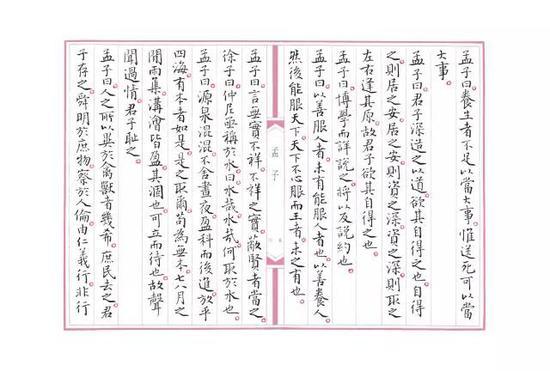 孟子曰。養生者不足以當大事。惟送死可以當
大事。
孟子曰。君子深造之以道。欲其自得之也。自得
之則居之安。居之安則資之深。資之深則取之
左右逢其原。故君子欲其自得之也。
孟子曰。博學而詳說之。將以反說約也。
孟子曰。以善服人者。未有能服人者也。以善養人。
然後能服天下。天下不心服而王者。未之有也。
孟子
孟子曰。言無實不祥。不祥之實。蔽賢者當之。
徐子曰。仲尼亟稱於水曰。水哉水哉。何取於水也。
孟子曰。源泉混混。不舍晝夜。盈科而後進。放乎
四海。有本者如是。是之取爾。苟為無本。七八月之
間雨集。溝澮皆盈。其涸也。可立而待也。故聲
聞過情。君子恥之。
孟子曰。人之所以異於禽獸者幾希。庶民去之。君
子存之。舜明於庶物。察於人倫。由仁義行。非行